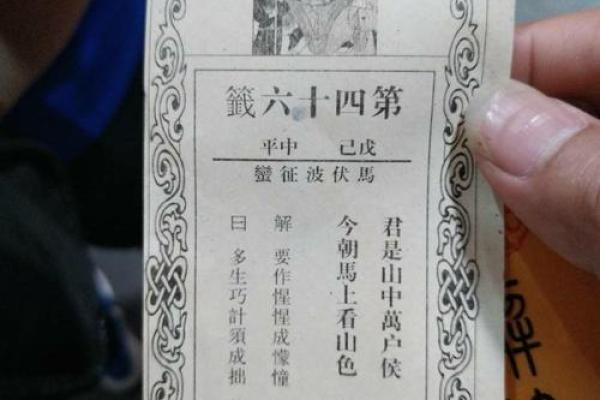 第四十六籤
戊己 中平
馬伏波征蠻
君是山中萬户侯
今朝馬上看山色
解 要作惺惺成懞憧
曰 多生巧計須成拙